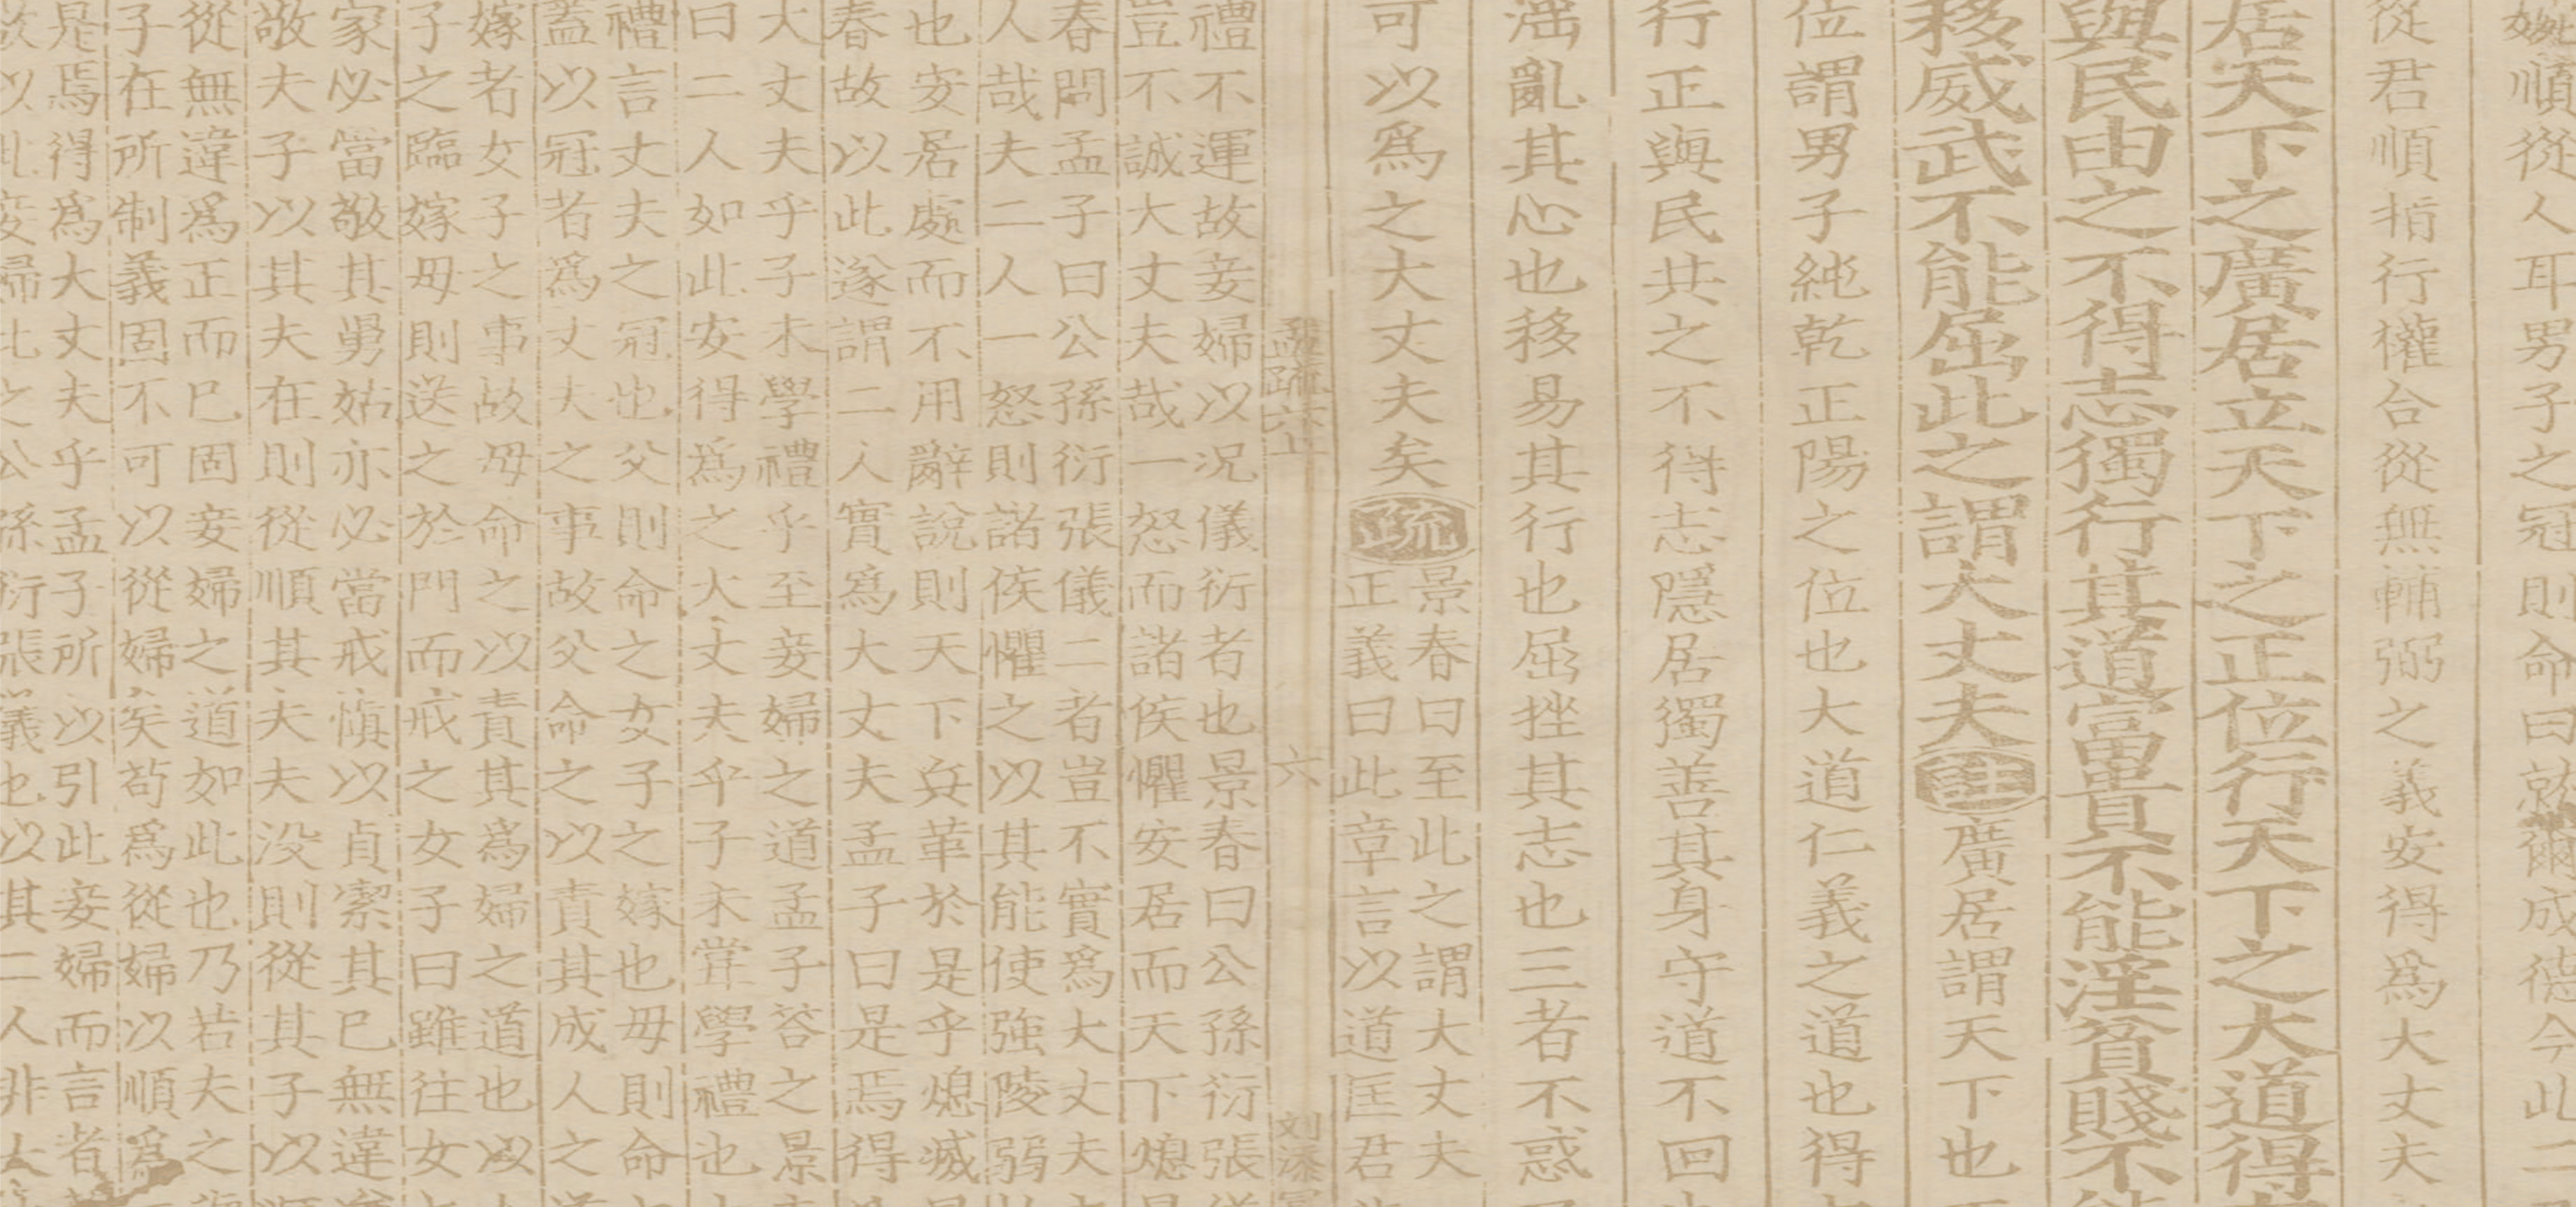 順從人耳男子之冠則命曰就爾成德今此二
從君順指行權合從無輔弼之義安得爲大丈夫
居天下之廣居立天下之正位行天下之大道得
與民由之不得志獨行其道富貴不能淫貧賤不
移威武不能屈此之謂大丈夫注廣居謂天下也
位謂男子純乾正陽之位也大道仁義之道也得
行正與民共之不得志隱居獨善其身守道不回
淫亂其心也移易其行也屈挫其志也三者不惑
可以爲之大丈夫矣疏
景春曰至此之謂大丈夫
正義曰此章言以道匡君
孟疏六上 六
禮不運故妾婦以況儀衍者也景春曰公孫衍張
豈不誠大丈夫哉一怒而諸侯懼安居而天下熄
春問孟子曰公孫衍張儀二者豈不實爲大丈夫
人哉夫二人一怒則諸侯懼之以其能使強陵弱
也安居處而不用辭說則天下兵革於是乎熄滅
春故以此遂謂二人實爲大丈夫孟子曰是焉得
大丈夫乎子未學禮乎至妾婦之道孟子荅之景
曰二人如此安得爲之大丈夫乎子未甞學禮也
禮言丈夫之冠也父則命之女子之嫁也母則命
蓋以冠者爲丈夫之事故父命之以責其成人之
嫁者女子之事故母命之以責其爲婦之道也以
子之臨嫁母則送之於門而戒之女子曰雖往女
家必當敬其舅姑亦必當戒愼以貞潔其已無違
敬夫子以其夫在則從順其夫夫没則從其子以
從無違爲正而已固妾婦之道如此也乃若夫之
子在所制義固不可以從婦矣苟爲從婦以順爲
是焉得爲大丈夫乎孟子所以引此妾婦而言者
故以此妾婦比之公孫衍張儀也以其二人非大